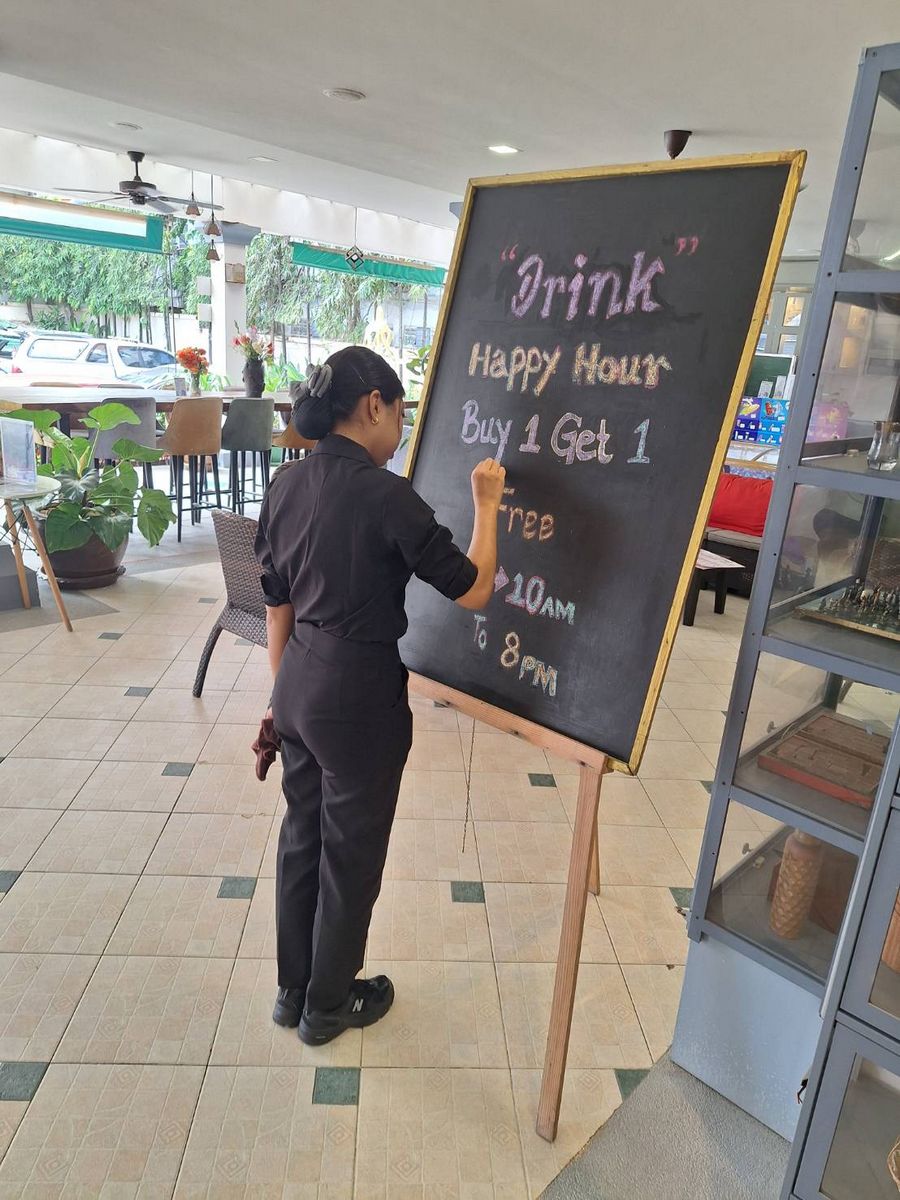 “Drink”
Happy Hour
Buy 1 Get 1
Free
10AM
To 8PM
N